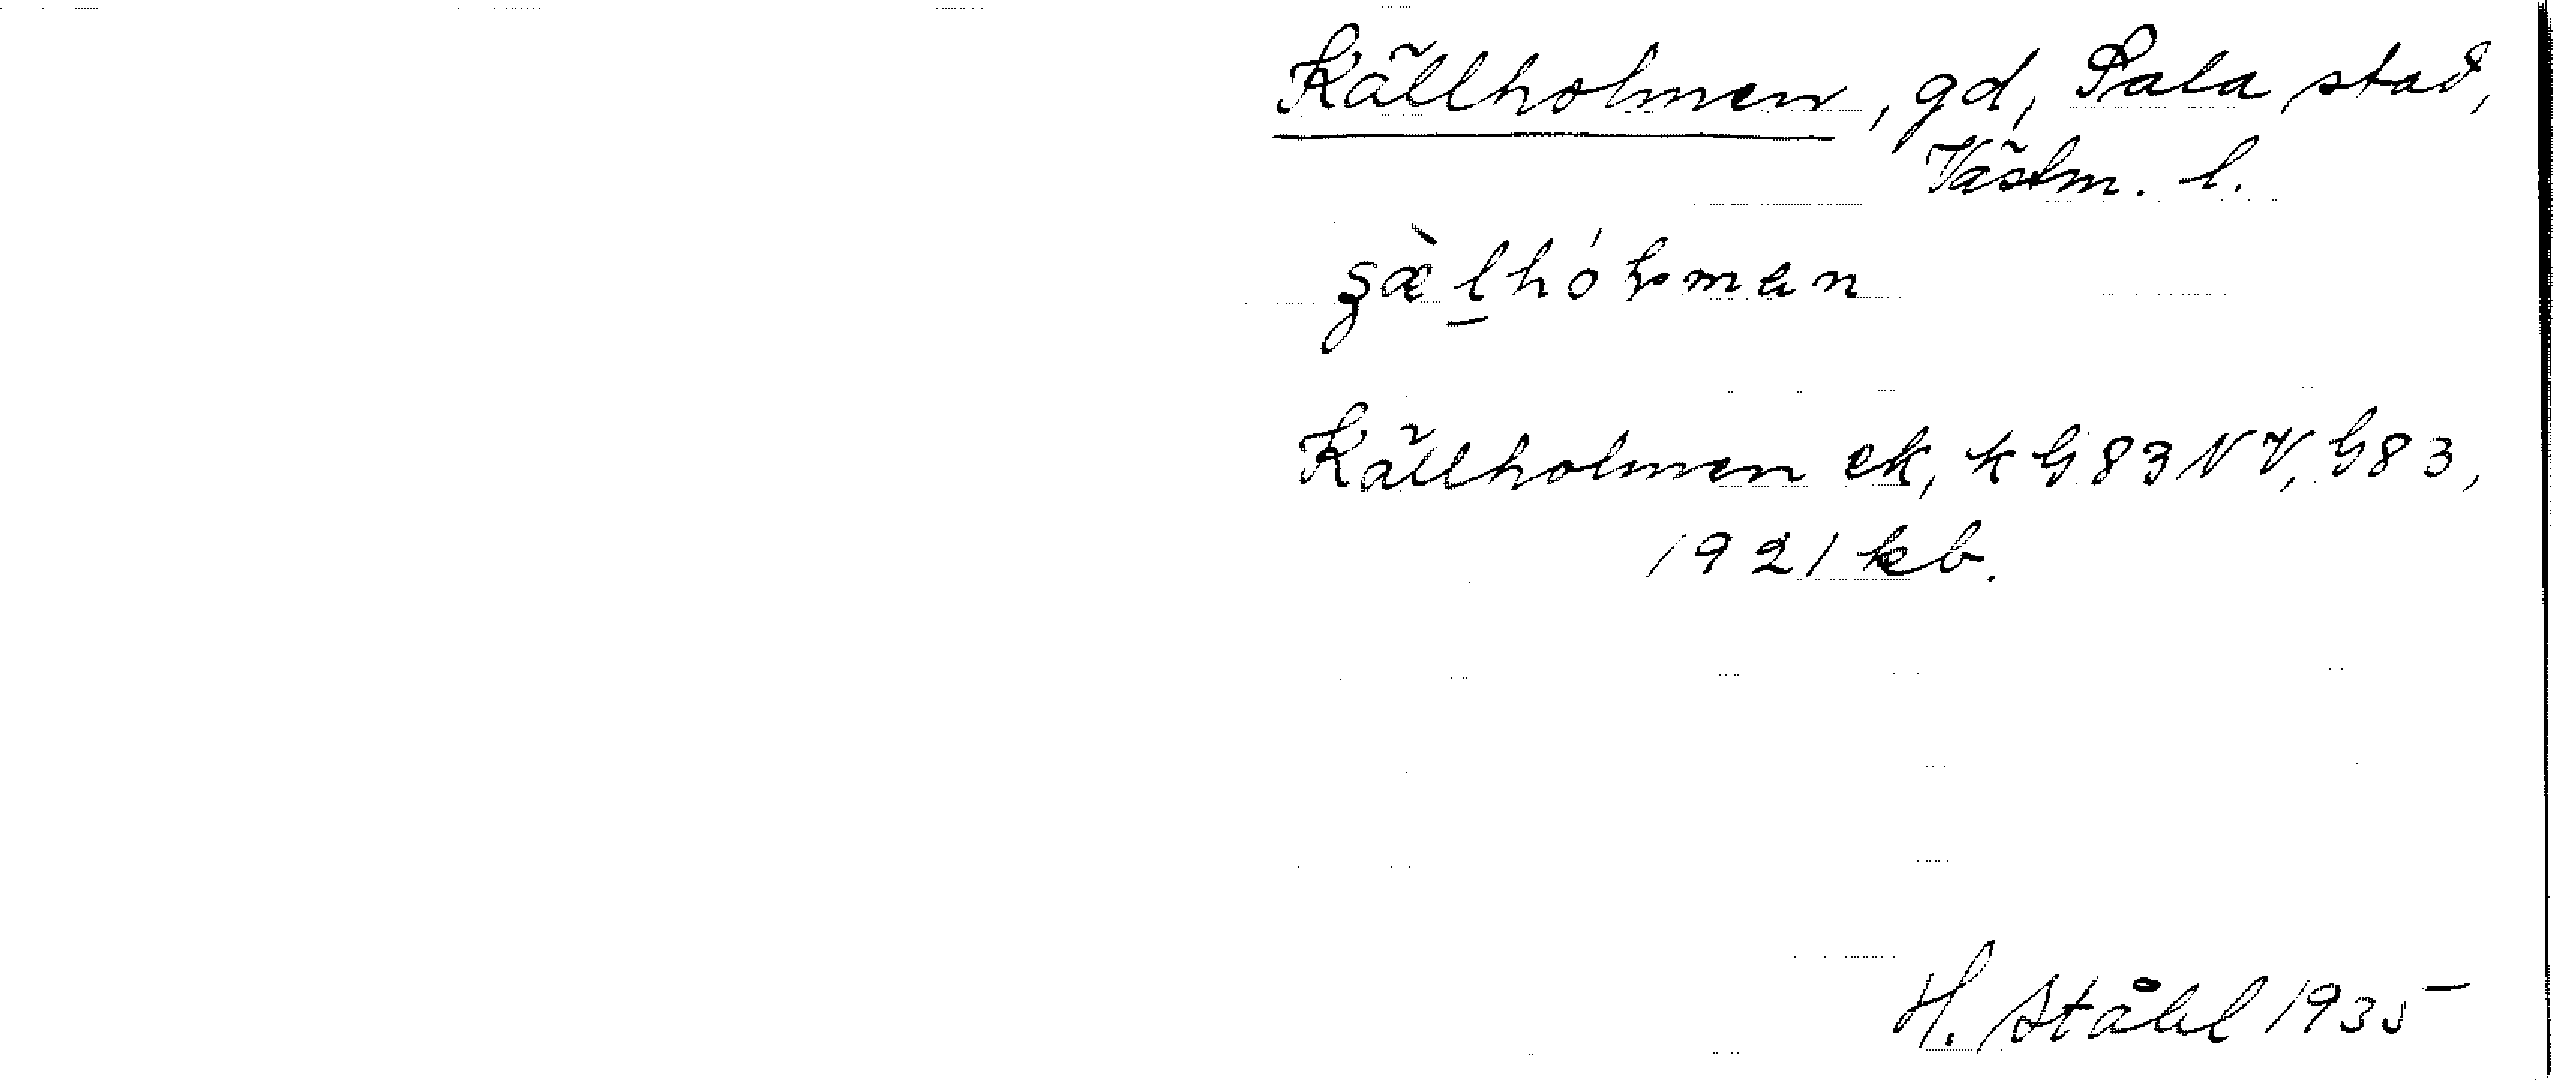 Källholmen, gd, Sala stad,
Västm. l.
Källholmen ek, k G 83 NV, G 83,
1921 kb.
H. Ståhl 1935